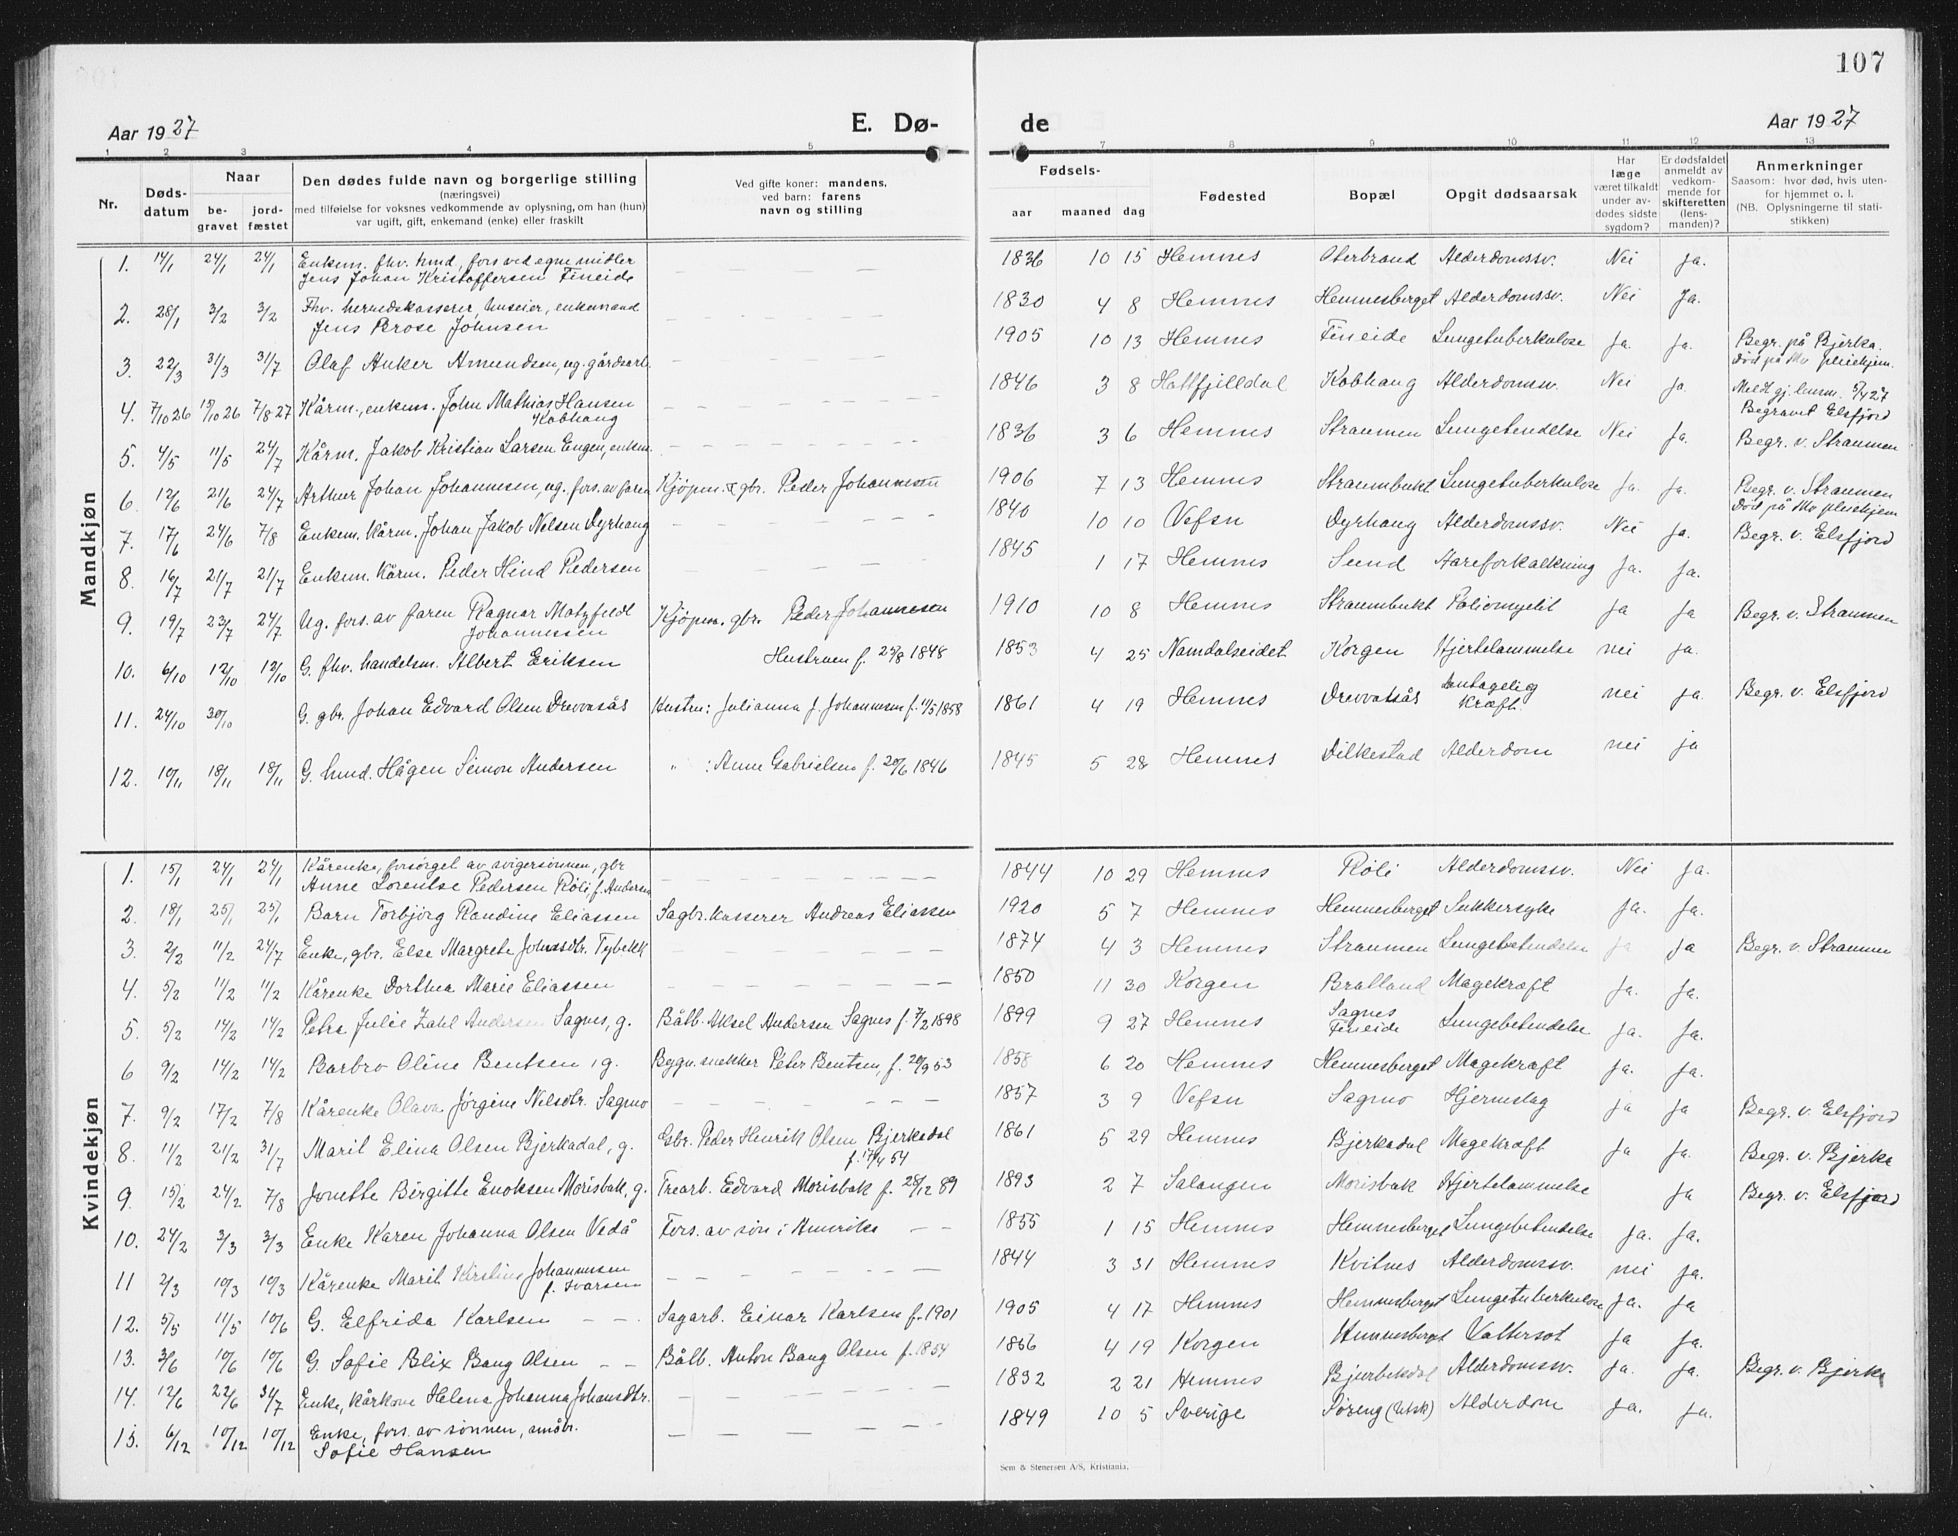 107
Aar 1927 E. Dø- de Aar 1927
1 2 3 4 5 7 8 9 10 11 12 13
Nr. Døds-datum Naar be-gravet jord-fæstet Den dødes fulde navn og borgerlige stilling (næringsvei) med tilføielse for voksnes vedkommende av oplysning, om han (hun) var ugift, gift, enkemand (enke) eller fraskilt Ved gifte koner: mandens, ved barn: farens navn og stilling Fødsels- aar maaned dag Fødested Bopæl Opgit dødsaarsak Har læge været tilkaldt under av-dødes sidste sygdom? Er dødsfaldet anmeldt av vedkom-mende for skifteretten (lens-manden)? Anmerkninger Saasom: hvor død, hvis uten-for hjemmet o. l. (NB. Oplysningerne til stati-stikken)
Mandkjøn
1. 14/1 24/1 24/1 Enkem. fhv. hmd, fors ved egne midler Jens Johan Kristoffersen Fineide — — — — 1836 10 15 Hemnes Oterbrand Alderdomssv. Nei Ja.
2. 28/1 3/2 3/2 Fhv. herredskasserer, huseier, enkemand Jens Brose Johnsen — — — — 1830 4 8 Hemnes Hemnesberget Alderdomssv. Nei Ja.
3. 22/3 31/3 31/7 Olaf Anker Amundsen, ug. gårdsarb. — — — — 1905 10 13 Hemnes Fineide Lungetuberkulose Ja. Ja. Begr. på Bjerka. Død på Mo pleiehjem.
4. 7/10 26 15/10 26 7/8 27 Kårm., enkem. John Mathias Hansen Kobhaug — — — — 1846 3 8 Hattfjelldal Kobhaug Alderdomssv. Nei Ja Meldt gj. lensm. 5/4 27 Begravet Elsfjord
5. 4/5 11/5 24/7 Kårm. Jakob Kristian Larsen Engen, enkem. — — — — 1836 3 6 Hemnes Straumen Lungebetendelse Nei Ja. Begr. v. Straumen
6. 12/6 21/6 24/7 Arthur Johan Johannesen, ug. fors. av faren Kjøpm. & gbr. Peder Johannesen 1906 7 13 Hemnes Straumbukt Lungetuberkulose Ja. Ja. Begr. v. Straumen Død på Mo pleiehjem
7. 17/6 24/6 7/8 Enkem. Kårm. Johan Jakob Nelsen Dyrhaug — — — — 1840 10 10 Vefsn Dyrhaug Alderdomssv. Nei Ja. Begr. v. Elsfjord
8. 16/7 21/7 21/7 Enkem. Kårm. Peder Hind Pedersen — — — — 1845 1 17 Hemnes Sund Aareforkalkning Ja. Ja.
9. 19/7 23/7 24/7 Ug. fors. av faren Ragnar Matzfeldt Johannessen Kjøpm. gbr. Peder Johannesen 1910 10 8 Hemnes Straumbukt Poliomyelit Ja Ja Begr. v. Straumen
10. 6/10 12/10 12/10 G. fhv. handelsm. Albert Eriksen Hustruen f. 25/8 1848 1853 4 25 Namdalseidet Korgen Hjertelammelse nei ja.
11. 24/10 30/10 G. gbr. Johan Edvard Olsen Drevvasås Hustru: Julianna J. Johannesen f. 11/5 1858 1861 4 19 Hemnes Drevvatsås Antagelig kræft. nei ja. Begr. v. Elsfjord
12. 10/11 18/11 18/11 G. hmd. Hågen Simon Andersen " : Anne Gabrielsen f. 20/6 1846 1845 5 28 Hemnes Dilkestad Alderdom nei ja
Kvindekjøn
1. 15/1 24/1 24/1 Kårenke, forsørget av svigersønnen, gbr. Anne Lorentse Pedersen Røli f. Andersen — — — — 1844 10 29 Hemnes Røli Alderdomssv. Nei Ja.
2. 18/1 25/1 25/1 Barn Torbjørg Randine Eliassen Sagbr. kasserer Andreas Eliassen 1920 5 7 Hemnes Hemnesberget Sukkersyke Ja. Ja.
3. 2/2 11/2 24/7 Enke, gbr. Else Margrete Johnsdtr. Tybekk — — — — 1874 4 3 Hemnes Straumen Lungebetendelse Ja Ja Begr. v. Straumen
4. 5/2 11/2 11/2 Kårenke Dorthea Marie Eliassen — — — — 1850 11 30 Korgen Bratland Magekræft Ja. Ja.
5. 5/2 14/2 14/2 Petra Julie Zahl Andersen Sagnes, g. Båtb. Aksel Andersen Sagnes f. 7/2 1898 1899 9 27 Hemnes Sagnes Fineide Lungebetendelse Ja. Ja.
6 9/2 14/2 14/2 Barbro Oline Bentsen, g. Bygn.snekker Peter Bentsen, f. 20/9 53 1858 6 20 Hemnes Hemnesberget Magekræft Ja. Ja.
7. 9/2 17/2 7/8 Kårenke Olava Jørgine Nilsdtr. Sagmo — — — — 1857 3 9 Vefsn Sagmo Hjerneslag Ja Ja Begr. v. Elsfjord
8. 11/2 21/2 31/7 Marit Elina Olsen Bjerkadal, g. Gbr. Peder Henrik Olsen Bjerkadal f. 17/4 54 1861 5 29 Hemnes Bjerkadal Magekræft Ja Ja. Begr. v. Bjerka
9. 15/2 24/2 7/8 Jonette Birgitte Enoksen Morisbak, g. Trearb. Edvard Morisbak f. 28/12 89 1893 2 7 Salangen Morisbak Hjertelammelse Ja Begr. v. Elsfjord
10. 24/2 3/3 3/3 Enke Karen Johanna Olsen Vedå Fors. av søn i Amerika — — 1855 1 15 Hemnes Hemnesberget Lungebetendelse Ja. Ja.
11 2/3 10/3 10/3 Kårenke Marit Kirstine Johannesen f. Ivarsen — — — — 1844 3 31 Hemnes Kvitnes Alderdomssv. nei Ja.
12. 5/5 11/5 10/6 G. Elfrida Karlsen — — Sagarb. Einar Karlsen f. 1901 1905 4 17 Hemnes Hemnesberget Lungetuberkulose Ja. Ja
13. 3/6 10/6 10/6 G. Sofie Blix Bang Olsen — — Båtb. Anton Bang Olsen f. 1854 1866 4 19 Korgen Hemnesberget Vattersot Ja Ja.
14. 12/6 22/6 31/7 Enke, kårkone Helena Johanna Johansdtr. — — — — 1832 2 21 Hemnes Bjurbekdal Alderdomssv. Ja. Ja. Begr. v. Bjerka
15. 6/12 10/12 10/12 Enke, fors. av sønnen, småbr. Sofie Hansen — — — — 1849 10 5 Sverige Søreng (Utsk) Alderdom Ja. Ja.
Sem & Stenersen A/S, Kristiania.